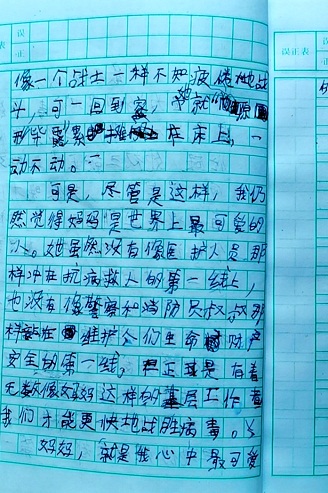 误
正 表
误正表
像一个战士一样不知疲倦地战
斗,可一回到家,她就“
在床上,一
动不动。
可是,尽管是这样,我仍
然觉得妈妈是世界上最可爱的
人。她虽然没有像医护人员那
样冲在抗病救人的第一线上,
也没有像警察和消防员叔叔那
样站在维护人们生命财产
安全的第一线,但正是有着
无数像妈妈这样的基层工作者
我们才能更快地战胜病毒。
妈妈,就是我心中最可爱